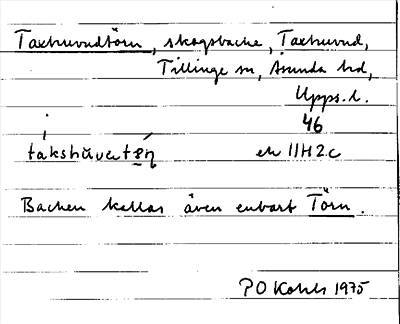 Taxhuvudtörn, skogsbacke, Taxhuvud,
Tillinge sn, Åsunda hd,
Upps. l.
46
ek 11H2c
Backen kallas även enbart Törn.
PO Kohls 1975